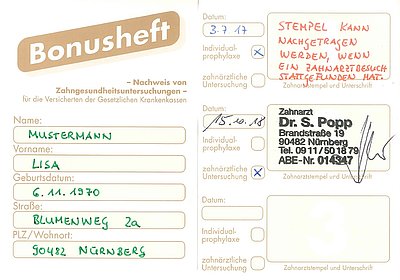 Bonusheft
– Nachweis von
Zahngesundheitsuntersuchungen –
für die Versicherten der Gesetzlichen Krankenkassen
Name:
MUSTERMANN
Vorname:
LISA
Geburtsdatum:
6.11.1970
Straße:
BLUMENWEG 2a
PLZ/Wohnort:
90482 NÜRNBERG
Datum:
3.7.17
Individual-
prophylaxe
x
zahnärztliche
Untersuchung
STEMPEL KANN
NACHGETRAGEN
WERDEN, WENN
EIN ZAHNARZTBESUCH
STATTGEFUNDEN HAT.
Zahnarztstempel und Unterschrift
Datum:
15.10.18
Individual-
prophylaxe
zahnärztliche
Untersuchung
x
Zahnarzt
Dr. S. Popp
Brandstraße 19
90482 Nürnberg
Tel. 09 11/50 18 79
ABE-Nr. 014347
Zahnarztstempel und Unterschrift
Datum:
Individual-
prophylaxe
zahnärztliche
Untersuchung
Zahnarztstempel und Unterschrift